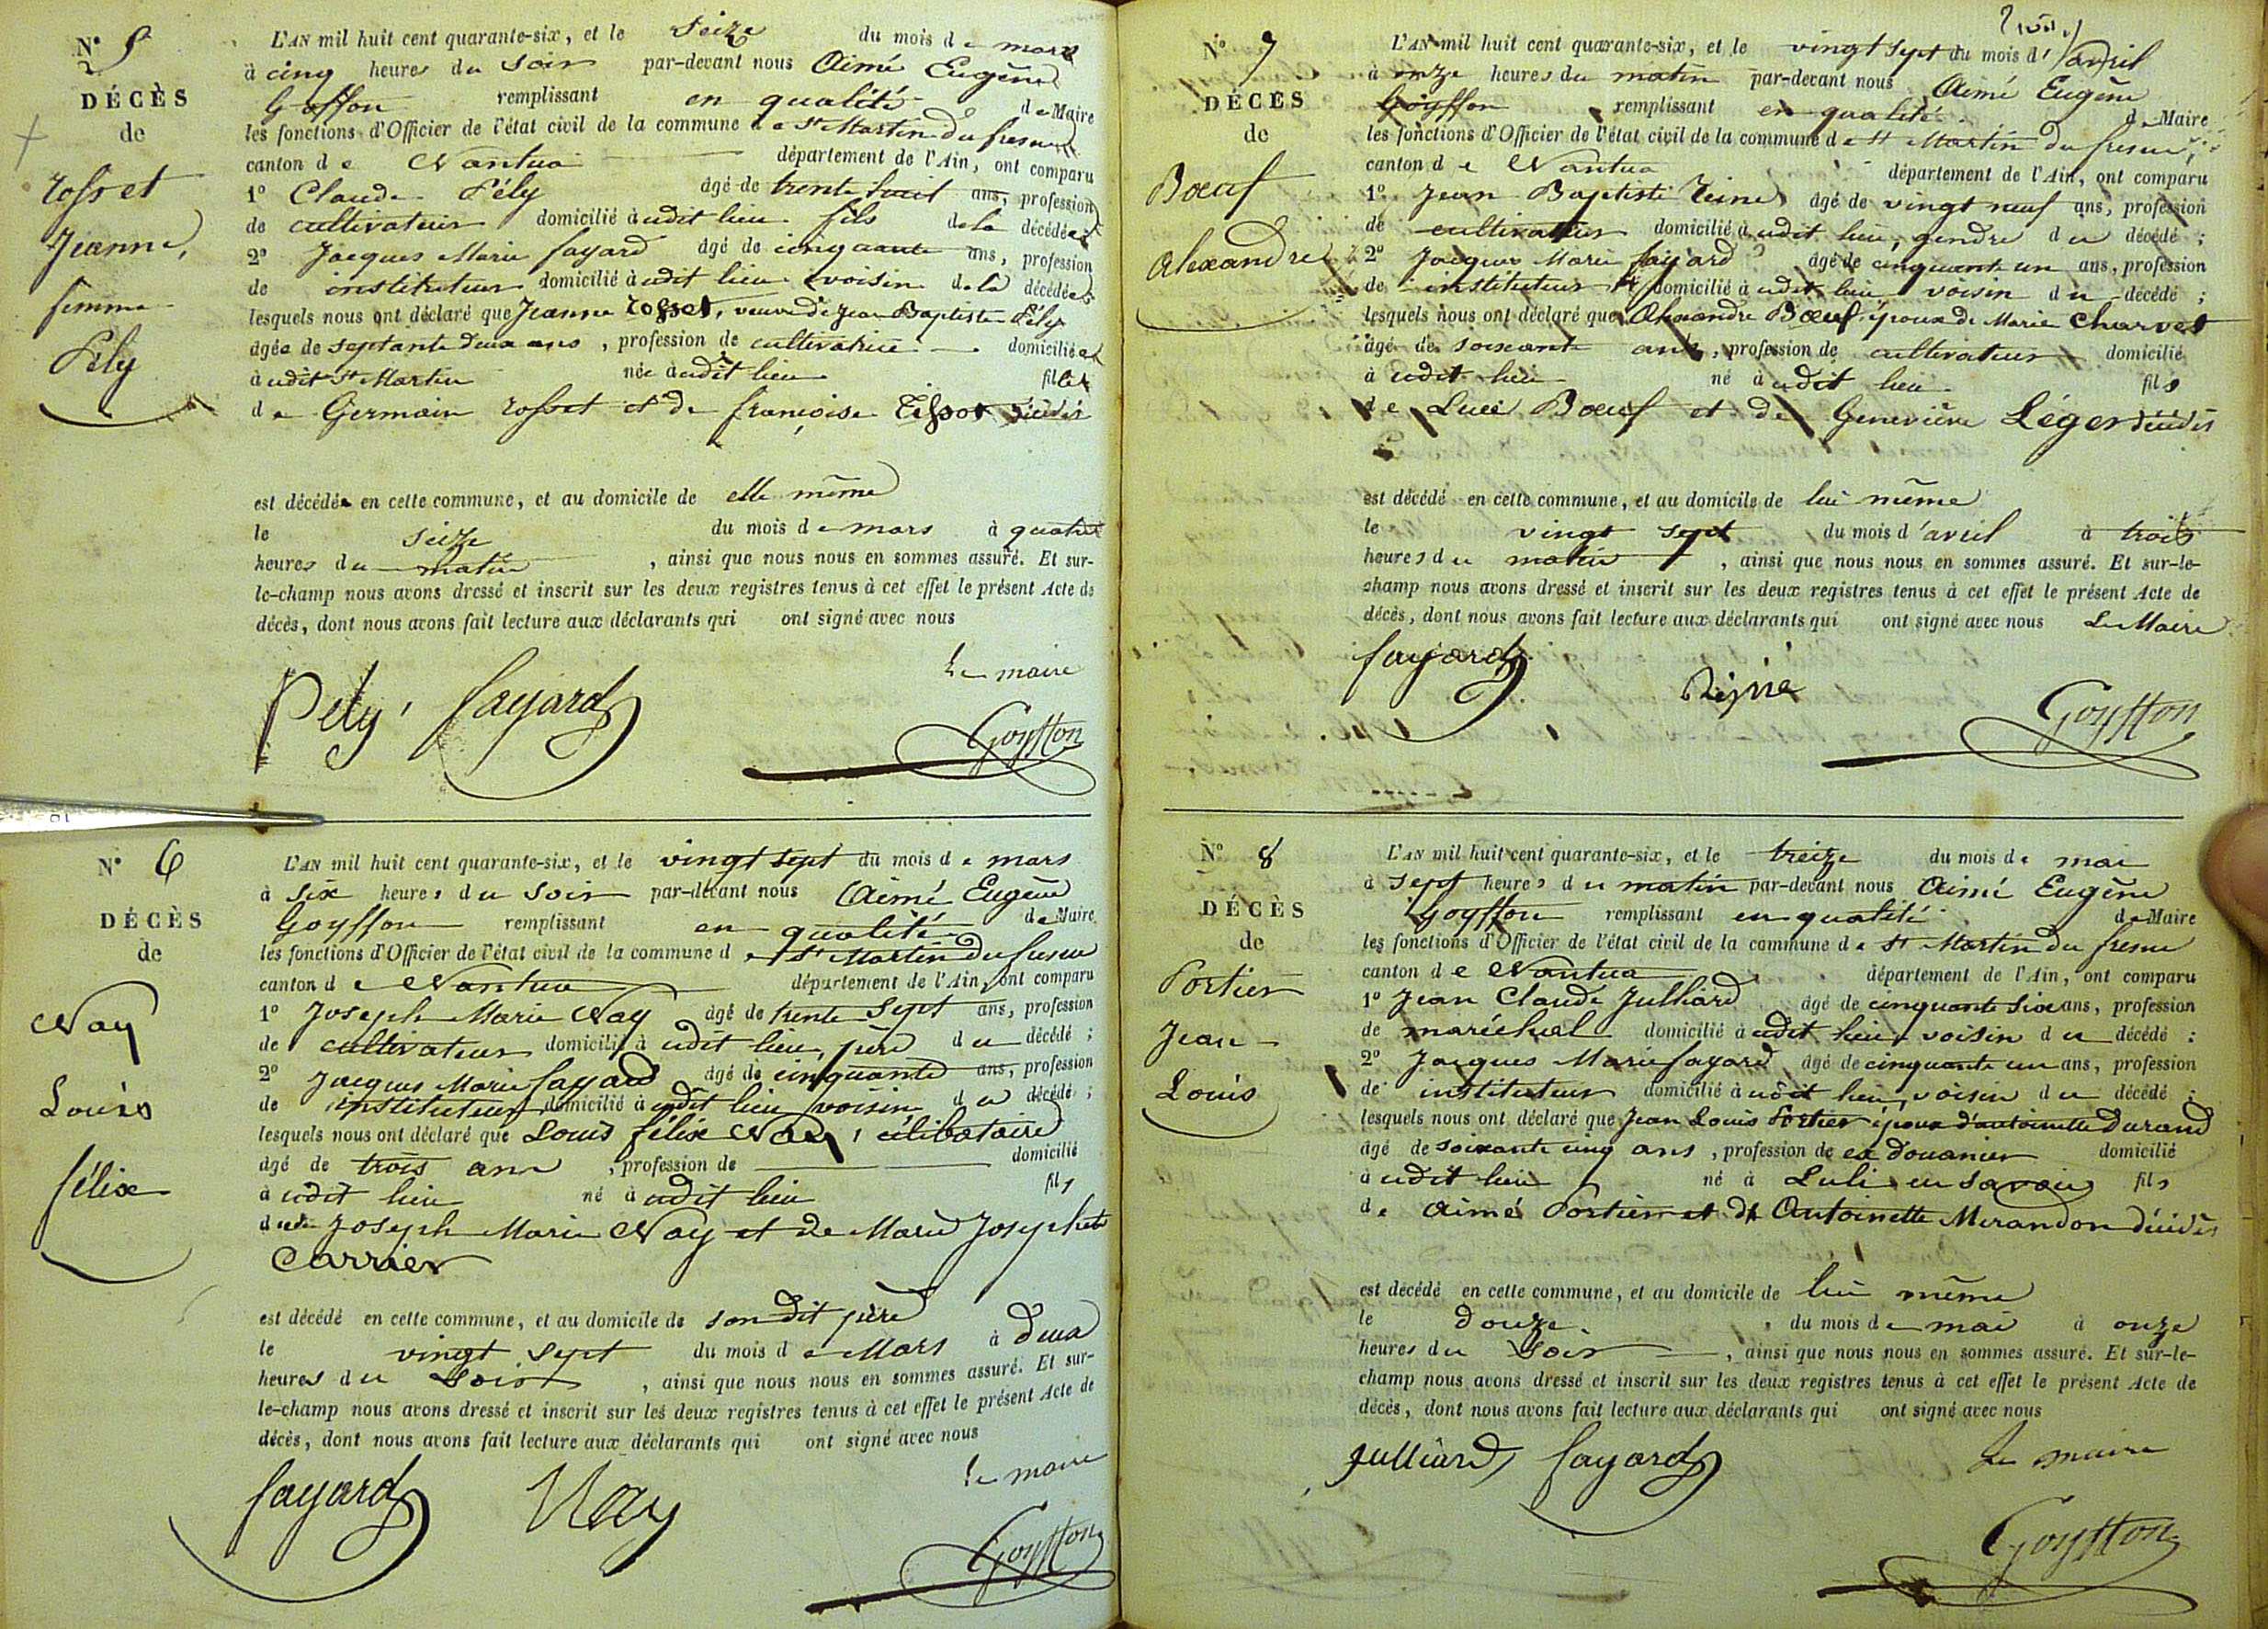 N° 5
DÉCÈS
de
Rosset
Jeanne,
femme
Pély
L'AN mil huit cent quarante-six, et le seize du mois de mars
à cinq heures du soir par-devant nous Aimé Eugène
Goyffon remplissant en qualité de Maire
les fonctions d'Officier de l'état civil de la commune de St Martin du fresne
canton de Nantua département de l'Ain, ont comparu
1° Claude Pély âgé de trente huit ans, profession
de cultivateur domicilié à udit lieu fils de la décédée;
2° Jacques Marie fayard âgé de cinquante ans, profession
de instituteur domicilié à udit lieu voisin de la décédée;
lesquels nous ont déclaré que Jeanne Rosset, veuve de Jean Baptiste Pély
âgée de septante deux ans, profession de cultivatrice domiciliée
à udit St Martin née à udit lieu fille
de Germain Rosset et de françoise Tissot décédés
est décédée en cette commune, et au domicile de elle même
le seize du mois de mars à quatre
heures du matin, ainsi que nous nous en sommes assuré. Et sur-
le-champ nous avons dressé et inscrit sur les deux registres tenus à cet effet le présent Acte de
décès, dont nous avons fait lecture aux déclarants qui ont signé avec nous
Le maire
Pely fayard
Goyffon
N° 6
DÉCÈS
de
Nay
Louis
félix
L'AN mil huit cent quarante-six, et le vingt sept du mois de mars
à six heures du soir par-devant nous Aimé Eugène
Goyffon remplissant en qualité de Maire
les fonctions d'Officier de l'état civil de la commune de St Martin du fresne
canton de Nantua département de l'Ain, ont comparu
1° Joseph Marie Nay âgé de trente sept ans, profession
de cultivateur domicilié à udit lieu, père du décédé;
2° Jacques Marie fayard âgé de cinquante ans, profession
de instituteur domicilié à udit lieu voisin du décédé;
lesquels nous ont déclaré que Louis félix Nay, célibataire
âgé de trois ans, profession de domicilié
à udit lieu né à udit lieu fils
dudit Joseph Marie Nay et de Marie Josephte
Carrier
est décédé en cette commune, et au domicile de son dit père
le vingt sept du mois de Mars à deux
heures du soir, ainsi que nous nous en sommes assuré. Et sur-
le-champ nous avons dressé et inscrit sur les deux registres tenus à cet effet le présent Acte de
décès, dont nous avons fait lecture aux déclarants qui ont signé avec nous
Le maire
fayard Nay
Goyffon
N° 7
DÉCÈS
de
Bœuf
Alexandre
L'AN mil huit cent quarante-six, et le vingt sept du mois d'avril
à onze heures du matin par-devant nous Aimé Eugène
Goyffon remplissant en qualité de Maire
les fonctions d'Officier de l'état civil de la commune de St Martin du fresne,
canton de Nantua département de l'Ain, ont comparu
1° Jean Baptiste âgé de vingt neuf ans, profession
de cultivateur domicilié à udit lieu, gendre du décédé;
2° Jacques Marie fayard âgé de cinquante un ans, profession
de instituteur domicilié à udit lieu voisin du décédé;
lesquels nous ont déclaré que Alexandre Bœuf époux de Marie Charvet
âgé de soixante ans, profession de cultivateur domicilié
à udit lieu né à udit lieu fils
de Bœuf et de Geneviève Léger décédés
est décédé en cette commune, et au domicile de lui même
le vingt sept du mois d'avril à trois
heures du matin, ainsi que nous nous en sommes assuré. Et sur-le-
champ nous avons dressé et inscrit sur les deux registres tenus à cet effet le présent Acte de
décès, dont nous avons fait lecture aux déclarants qui ont signé avec nous Le Maire
fayard
Goyffon
N° 8
DÉCÈS
de
Portier
Jean
Louis
L'AN mil huit cent quarante-six, et le treize du mois de mai
à sept heures du matin par-devant nous Aimé Eugène
Goyffon remplissant en qualité de Maire
les fonctions d'Officier de l'état civil de la commune de St Martin du fresne
canton de Nantua département de l'Ain, ont comparu
1° Jean Claude Julliard âgé de cinquante six ans, profession
de maréchal domicilié à udit lieu voisin du décédé;
2° Jacques Marie fayard âgé de cinquante un ans, profession
de instituteur domicilié à udit lieu, voisin du décédé;
lesquels nous ont déclaré que Jean Louis Portier époux d'antoinette Durand
âgé de soixante cinq ans, profession de ex douanier domicilié
à udit lieu né à en Savoie fils
de Aimé Portier et de Antoinette Mirandon décédés
est décédé en cette commune, et au domicile de lui même
le douze du mois de mai à onze
heures du soir, ainsi que nous nous en sommes assuré. Et sur-le-
champ nous avons dressé et inscrit sur les deux registres tenus à cet effet le présent Acte de
décès, dont nous avons fait lecture aux déclarants qui ont signé avec nous
Le maire
Julliard fayard
Goyffon